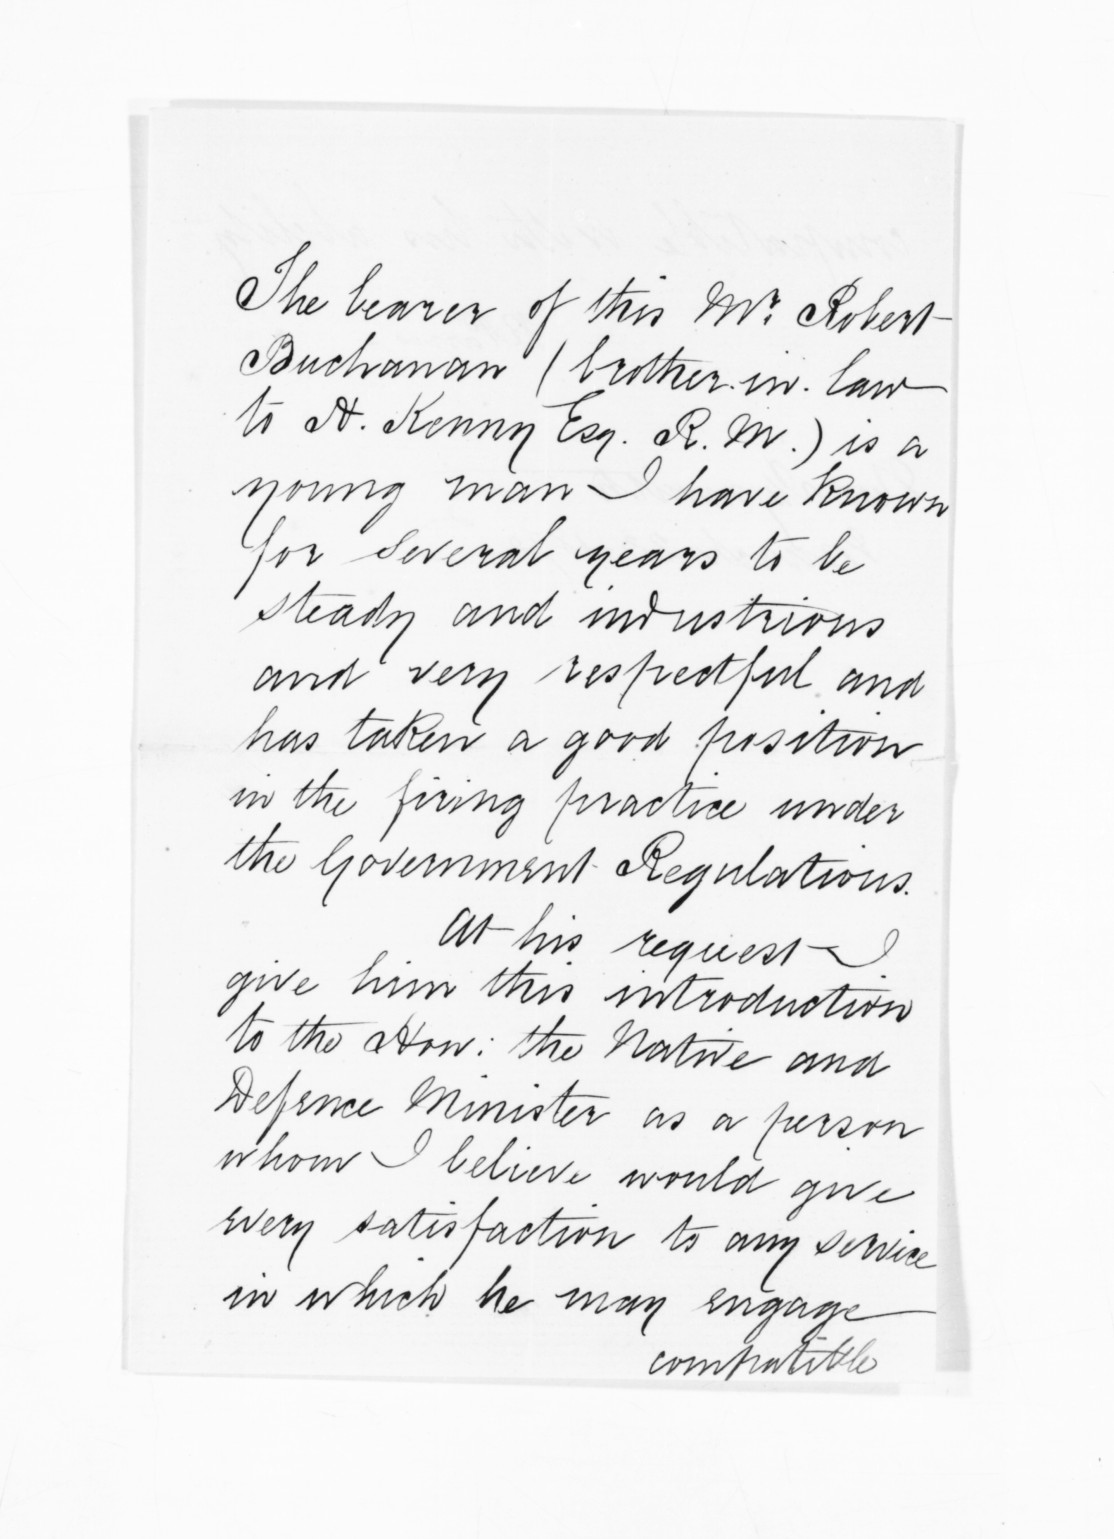 The bearer of this Mr. Robert
Buchanan (brother.in.law
to H. Kenny Esq. R.M.) is a
young man I have known
for several years to be
steady and industrious
and very respectful and
has taken a good position
in the firing practice under
the Government Regulations.
At his request I
give him this introduction
to the Hon: the Native and
Defence Minister as a person
whom I believe would give
every satisfaction to any service
in which he may engage
compatible